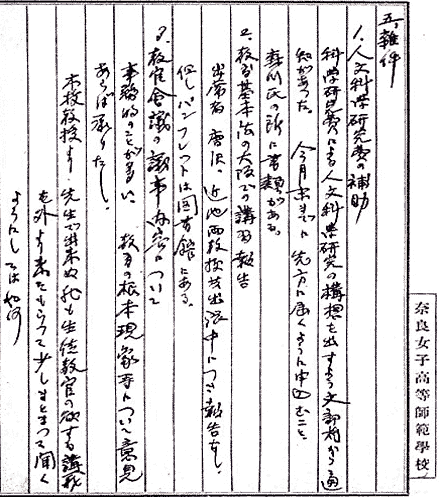 五、雜件
1. 人文科学研究費の補助
科学研究費による人文科学研究の構想を出すよう文部省から通
知があった。 今月末までに先方に届くように申込むこと。
森川氏の所に書類がある。
2. 教育基本法の大阪での講習報告
出席者 唐沢、近池両教授共出張中につき報告なし。
但しパンフレットは図書館にある。
3. 教官会議の議事内容について
事務的のことが多い、教育の根本現象等について意見
あらば承りたし。
本校教授より 先生で出来ぬ所も生徒教官の欲する講義
を外より来てもらって少しまとまって聞く
ようにしては如何
奈良女子高等師範學校